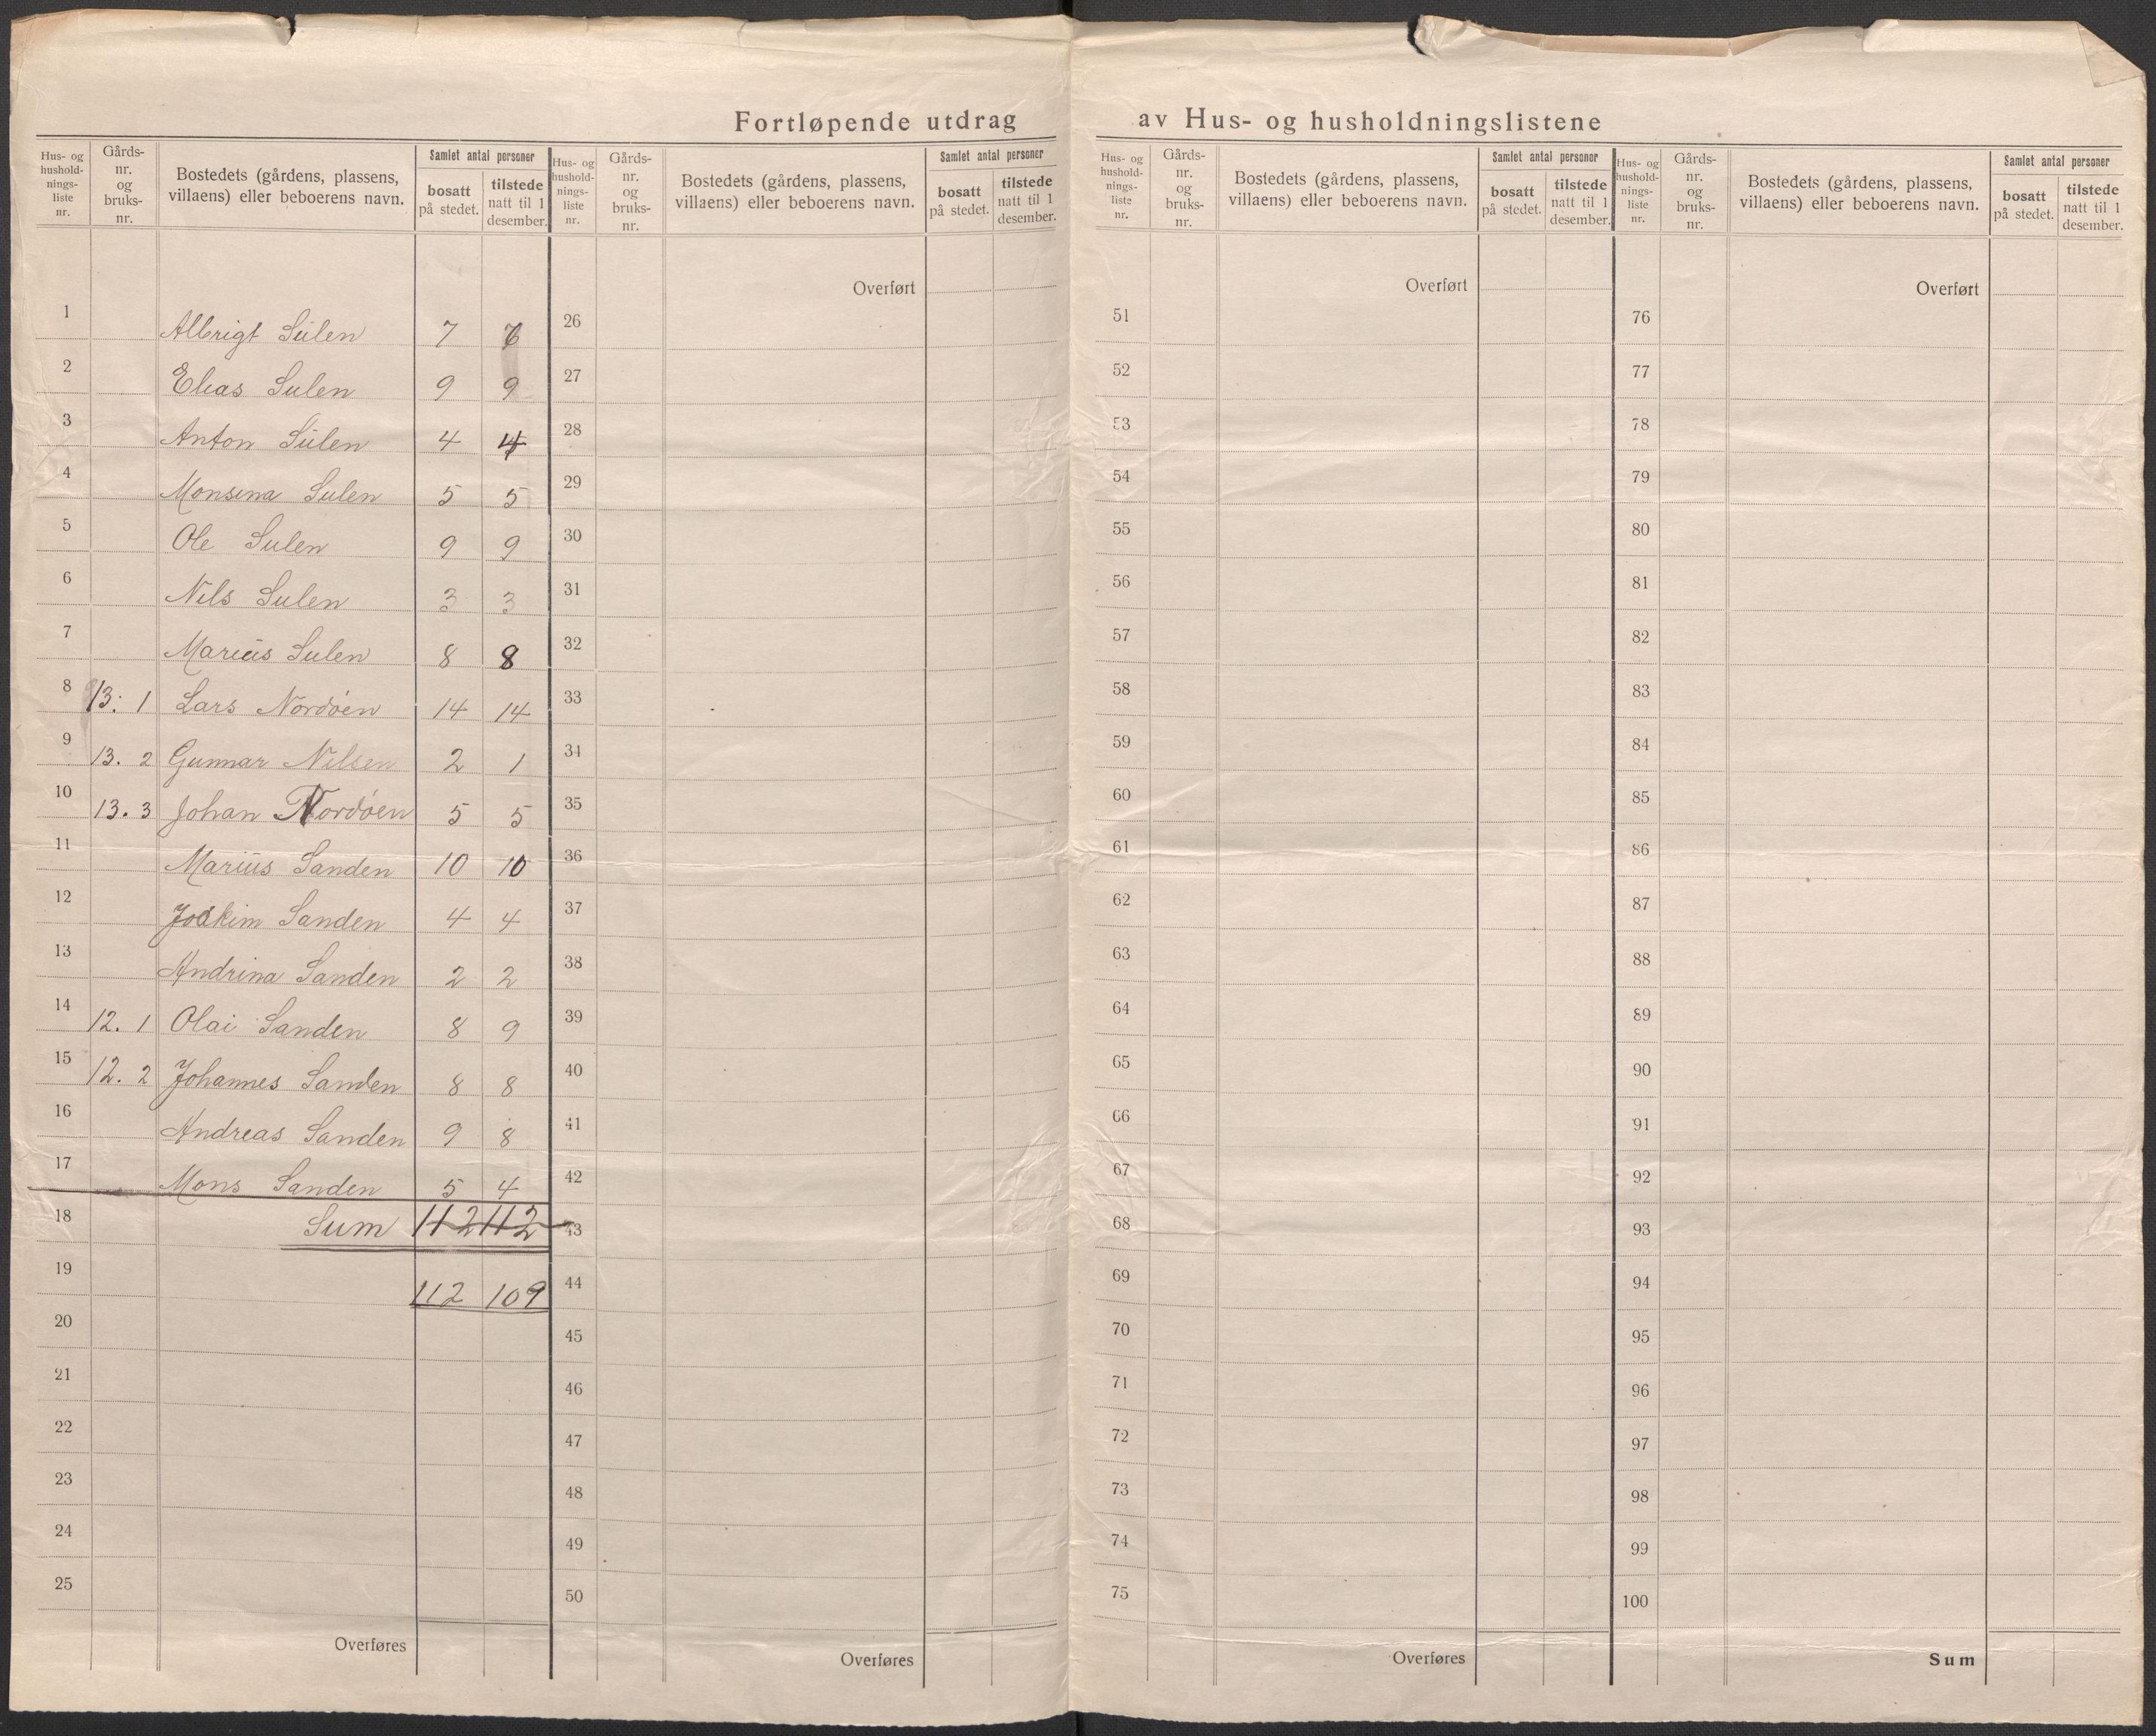 Fortløpende utdrag av Hus- og husholdningslistene
Hus- og hushold-nings-liste nr. Gårds-nr. og bruks-nr. Bostedets (gårdens, plassens, villaens) eller beboerens navn. Samlet antal personer bosatt på stedet. tilstede natt til 1 desember.
1 Albrigt Sulen 7
2 Elias Sulen 9 9
3 Anton Sulen 4 4
4 Monsina Sulen 5 5
5 Ole Sulen 9 9
6 Nils Sulen 3 3
7 Marius Sulen 8 8
8 13. 1 Lars Nordöen 14 14
9 13. 2 Gunnar Nilsen 2 1
10 13. 3 Johan Nordöen 5 5
11 Marius Sanden 10 10
12 Joakim Sanden 4 4
13 Andrina Sanden 2 2
14 12. 1 Olai Sanden 8 9
15 12. 2 Johannes Sanden 8 8
16 Andreas Sanden 9 8
17 Mons Sanden 5 4
18 Sum 112 112
19 112 109
20
21
22
23
24
25
Overføres
Hus- og hushold-nings-liste nr. Gårds-nr. og bruks-nr. Bostedets (gårdens, plassens, villaens) eller beboerens navn. Samlet antal personer bosatt på stedet. tilstede natt til 1 desember.
Overført
26
27
28
29
30
31
32
33
34
35
36
37
38
39
40
41
42
43
44
45
46
47
48
49
50
Overføres
Hus- og hushold-nings-liste nr. Gårds-nr. og bruks-nr. Bostedets (gårdens, plassens, villaens) eller beboerens navn. Samlet antal personer bosatt på stedet. tilstede natt til 1 desember.
Overført
51
52
53
54
55
56
57
58
59
60
61
62
63
64
65
66
67
68
69
70
71
72
73
74
75
Overføres
Hus- og hushold-nings-liste nr. Gårds-nr. og bruks-nr. Bostedets (gårdens, plassens, villaens) eller beboerens navn. Samlet antal personer bosatt på stedet. tilstede natt til 1 desember.
Overført
76
77
78
79
80
81
82
83
84
85
86
87
88
89
90
91
92
93
94
95
96
97
98
99
100
Sum